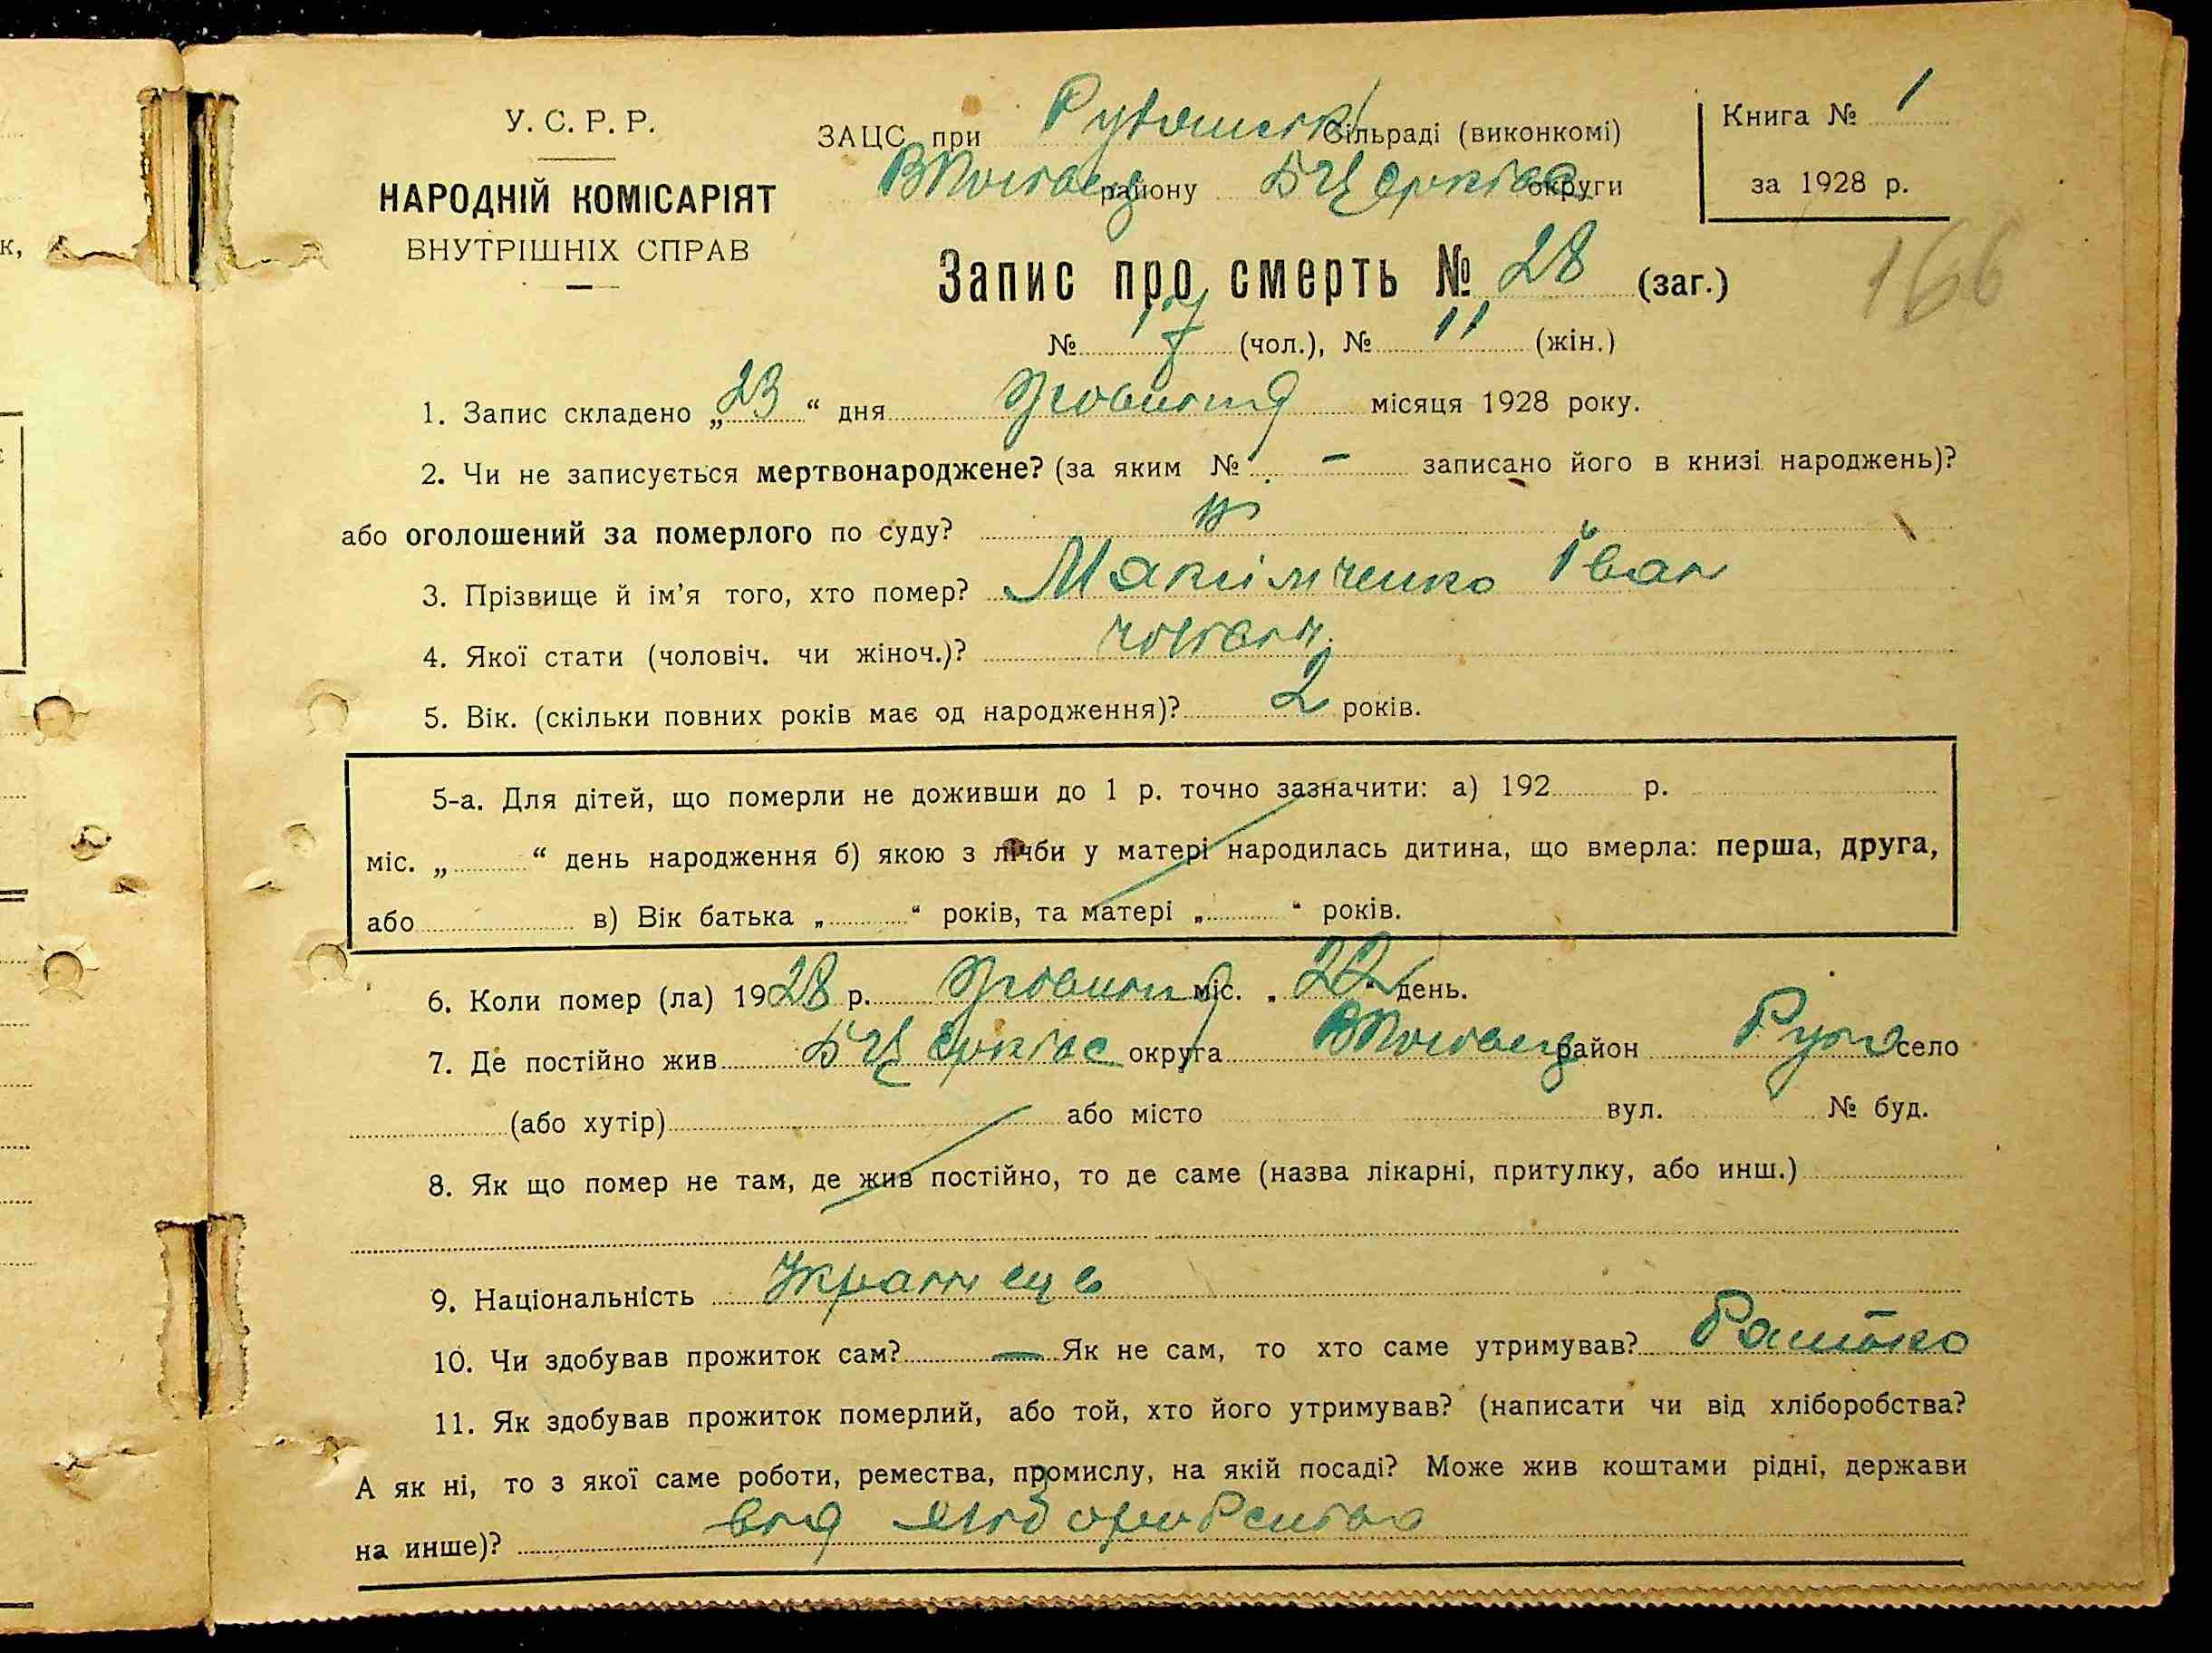 У. С. Р. Р.
НАРОДНІЙ КОМІСАРІЯТ
ВНУТРІШНІХ СПРАВ
ЗАЦС при Сільраді (виконкомі)
району БЦерківс округи
Книга № 1
за 1928 р.
166
Запис про смерть № 28 (заг.)
№ 17 (чол.), № 11 (жін.)
1. Запис складено „23“ дня Жовтня місяця 1928 року.
2. Чи не записується мертвонароджене? (за яким № - записано його в книзі народжень)?
або оголошений за померлого по суду?
3. Прізвище й ім'я того, хто помер? Макімченко Іван
4. Якої стати (чоловіч. чи жіноч.)? чоловіч.
5. Вік. (скільки повних років має од народження)? 2 років.
5-а. Для дітей, що померли не доживши до 1 р. точно зазначити: а) 192 р.
міс. „ “ день народження б) якою з лічби у матері народилась дитина, що вмерла: перша, друга,
або в) Вік батька „ “ років, та матері „ “ років.
6. Коли помер (ла) 1928 р. Жовтня міс. „22“ день.
7. Де постійно жив БЦерківс округа район село
(або хутір) або місто вул. № буд.
8. Як що помер не там, де жив постійно, то де саме (назва лікарні, притулку, або инш.)
9. Національність Українець
10. Чи здобував прожиток сам? — Як не сам, то хто саме утримував? Батько
11. Як здобував прожиток померлий, або той, хто його утримував? (написати чи від хліборобства?
А як ні, то з якої саме роботи, ремества, промислу, на якій посаді? Може жив коштами рідні, держави
на инше)? від хліборобства